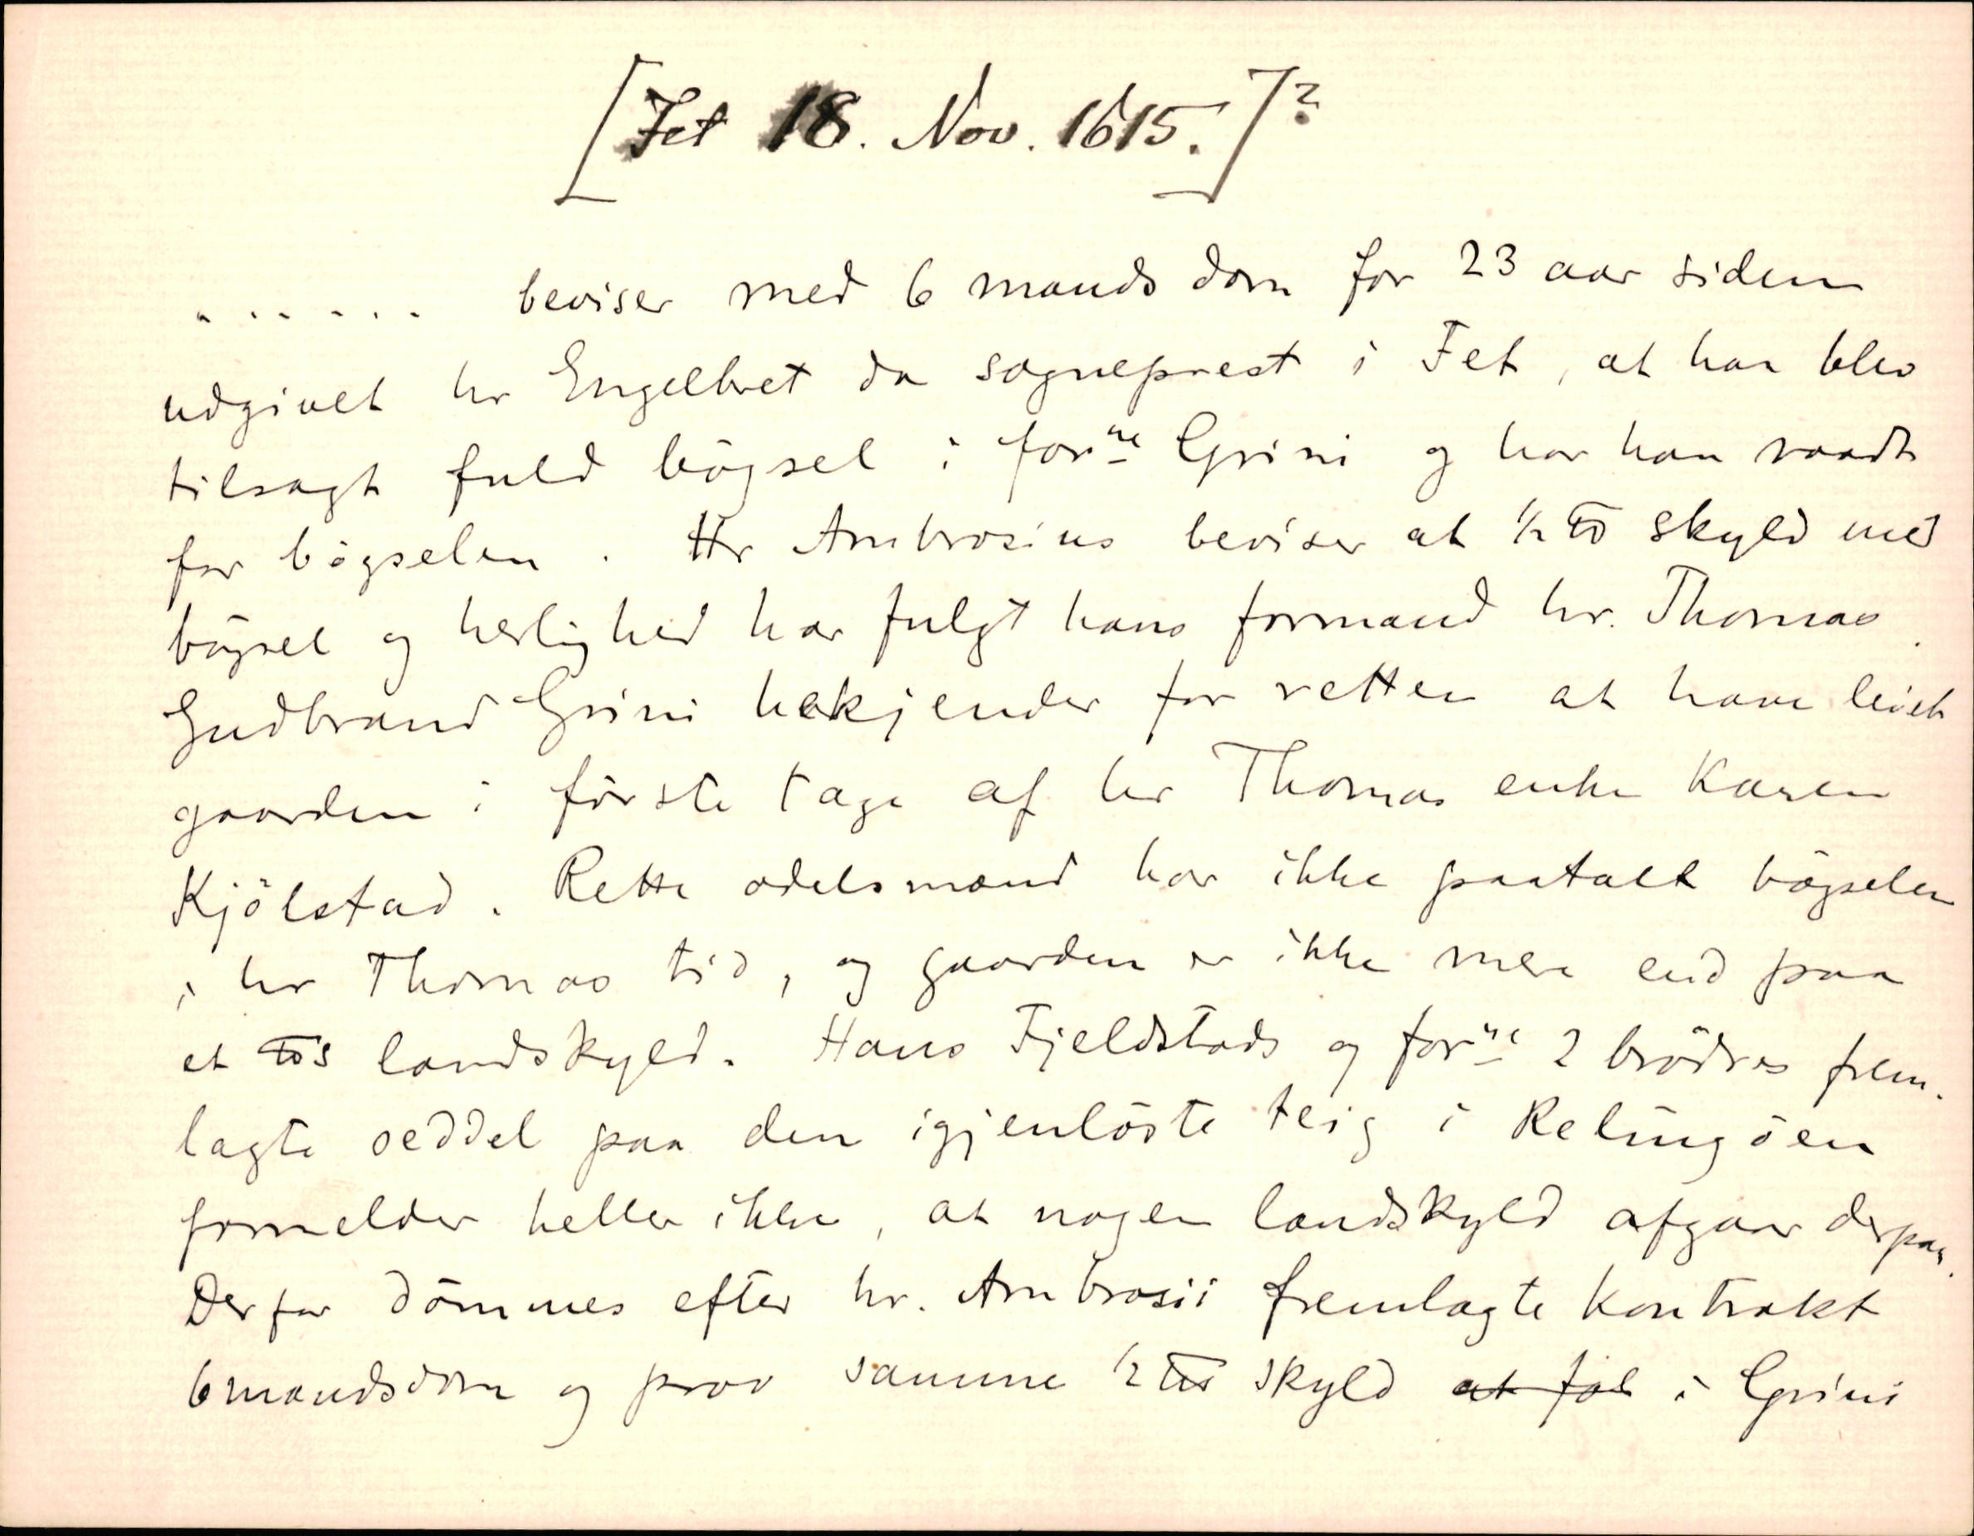 [Fet 18. Nov. 1615.]?
. . . . . . beviser med 6 mands dom for 23 aar siden
udgivet hr Engelbret da sogneprest i Fet, at han blev
tilsagt fuld bögsel i forne Grini og har han raadt
for bögselen. Hr Ambrosius beviser at ½ tö skyld med
bögsel og herlighed har fulgt hans formand hr. Thomas.
Gudbrand Grini bekjender for retten at have leiet
gaarden i förste tage af hr Thomas enke Karen
Kjölstad. Rette odelsmænd har ikke paatalt bögselen
i hr Thomas tid, og gaarden er ikke mere end paa
et tös landskyld. Hans Fjeldstads og forne 2 brödres frem-
lagte seddel paa den igjenlöste teig i Relingöen
formelder heller ikke, at nogen landskyld afgaar derpaa.
Derfor dömmes efter hr. Ambrosii fremlagte kontrakt
6mandsdom og prov samme ½ tös skyld at föl i Grini